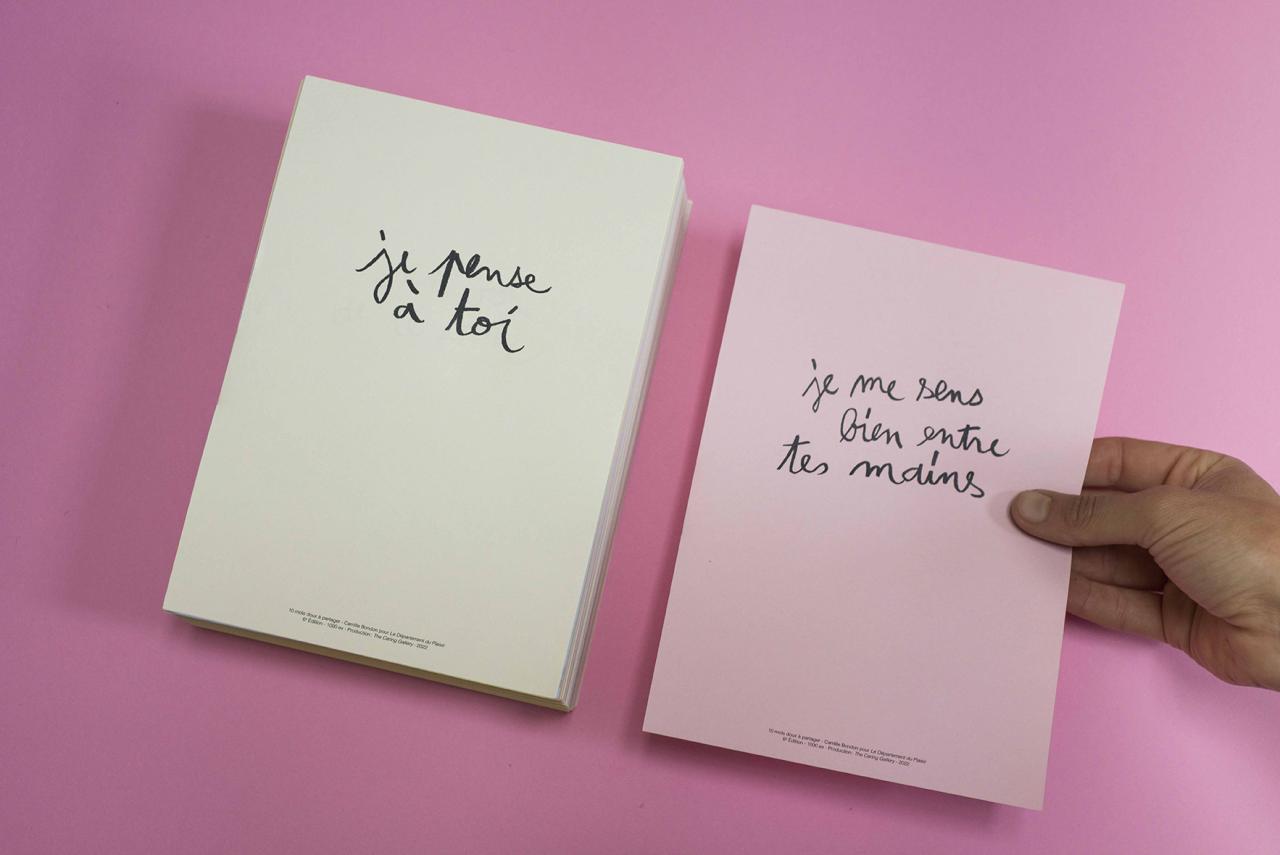 je pense
à toi
10 mots doux à partager - Camille Bondon pour Le Département du Plaisir
6ᵉ Édition - 1000 ex - Production : The Caring Gallery - 2022
je me sens
bien entre
tes mains
10 mots doux à partager - Camille Bondon pour Le Département du Plaisir
6ᵉ Édition - 1000 ex - Production : The Caring Gallery - 2022